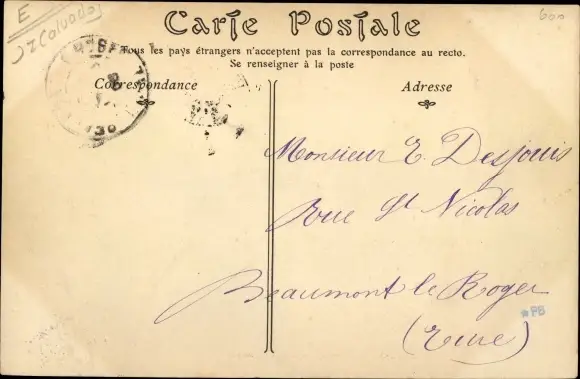 E
(Calvados)
600
Carte Postale
Tous les pays étrangers n'acceptent pas la correspondance au recto.
Se renseigner à la poste
Correspondance
Adresse
Monsieur E. Desjouis
Rue St Nicolas
Beaumont le Roger
(Eure)
*PB